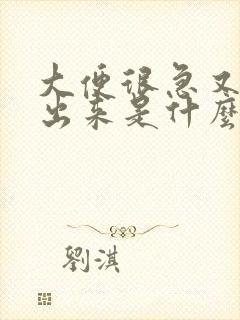 大便很急又
出来是什麼
劉淇